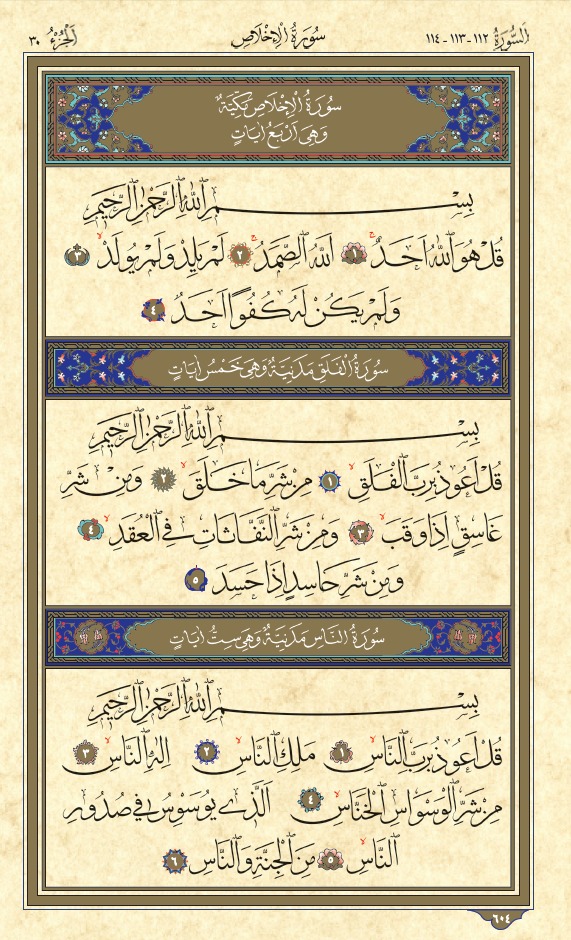 اَلسُّورَةُ ١١٢ - ١١٣ - ١١٤ سُورَةُ الْاِخْلَاصِ اَلْجُزْءُ ٣٠
سُورَةُ الْاِخْلَاصِ مَكِّيَّةٌ
وَهِيَ اَرْبَعُ اٰيَاتٍ
بِسْمِ اللّٰهِ الرَّحْمٰنِ الرَّحِيمِ
قُلْ هُوَ اللّٰهُ اَحَدٌۚ ﴿١﴾ اَللّٰهُ الصَّمَدُۚ ﴿٢﴾ لَمْ يَلِدْ وَلَمْ يُولَدْۙ ﴿٣﴾
وَلَمْ يَكُنْ لَهُ كُفُوًا اَحَدٌ ﴿٤﴾
سُورَةُ الْفَلَقِ مَدَنِيَّةٌ وَهِيَ خَمْسُ اٰيَاتٍ
بِسْمِ اللّٰهِ الرَّحْمٰنِ الرَّحِيمِ
قُلْ اَعُوذُ بِرَبِّ الْفَلَقِۙ ﴿١﴾ مِنْ شَرِّ مَا خَلَقَۙ ﴿٢﴾ وَمِنْ شَرِّ
غَاسِقٍ اِذَا وَقَبَۙ ﴿٣﴾ وَمِنْ شَرِّ النَّفَّاثَاتِ فِي الْعُقَدِۙ ﴿٤﴾
وَمِنْ شَرِّ حَاسِدٍ اِذَا حَسَدَ ﴿٥﴾
سُورَةُ النَّاسِ مَدَنِيَّةٌ وَهِيَ سِتُّ اٰيَاتٍ
بِسْمِ اللّٰهِ الرَّحْمٰنِ الرَّحِيمِ
قُلْ اَعُوذُ بِرَبِّ النَّاسِۙ ﴿١﴾ مَلِكِ النَّاسِۙ ﴿٢﴾ اِلٰهِ النَّاسِۙ ﴿٣﴾
مِنْ شَرِّ الْوَسْوَاسِ الْخَنَّاسِۙ ﴿٤﴾ اَلَّذِي يُوَسْوِسُ فِي صُدُورِ
النَّاسِۙ ﴿٥﴾ مِنَ الْجِنَّةِ وَالنَّاسِ ﴿٦﴾
٦٠٤